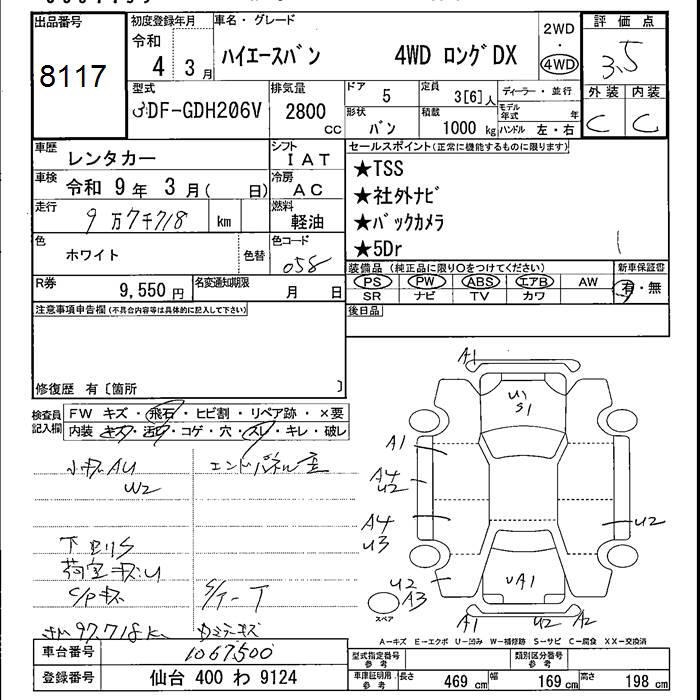 出品番号
8117
初度登録年月
令和
4 3月
車名・グレード
ハイエースバン 4WD ロングDX
2WD
・
4WD
評価点
3.5
外装 内装
C C
型式
3DF-GDH206V
排気量
2800
cc
ドア
5
定員
3[6]人
ディーラー・並行
モデル年式 年
形状
バン
積載
1000 kg
ハンドル 左・右
車歴
レンタカー
シフト
IAT
車検
令和 9年 3月( 日)
冷房
AC
走行
9万7千718 km
燃料
軽油
色
ホワイト
色替
色コード
058
R券
9,550円
名変通知期限
月 日
セールスポイント(正常に機能するものに限ります)
★TSS
★社外ナビ
★バックカメラ
★5Dr
装備品(純正品に限り〇をつけてください)
PS PW ABS エアB AW
SR ナビ TV カワ
新車保証書
有・無
後日品
注意事項申告欄(不具合内容等は具体的に記入して下さい)
修復歴 有〔箇所 〕
検査員
記入欄
FW キズ・飛石・ヒビ割・リペア跡・×要
内装 キズ・汚レ・コゲ・穴・スレ・キレ・破レ
小キズAU
W2
エンドパネル
下回りS
荷室キズU
C/Pキズ
97,718
A1
U1
S1
A1
A4
U2
A4
U3
U2
U2
A3
UA1
A1
U2
A2
スペア
A-キズ E-エクボ U-凹み W-補修跡 S-サビ C-腐食 XX-交換済
車台番号
1067500
登録番号
仙台 400 わ 9124
型式指定番号
参考
類別区分番号
参考
車庫証明用
参考
長さ 469 cm
幅 169 cm
高さ 198 cm